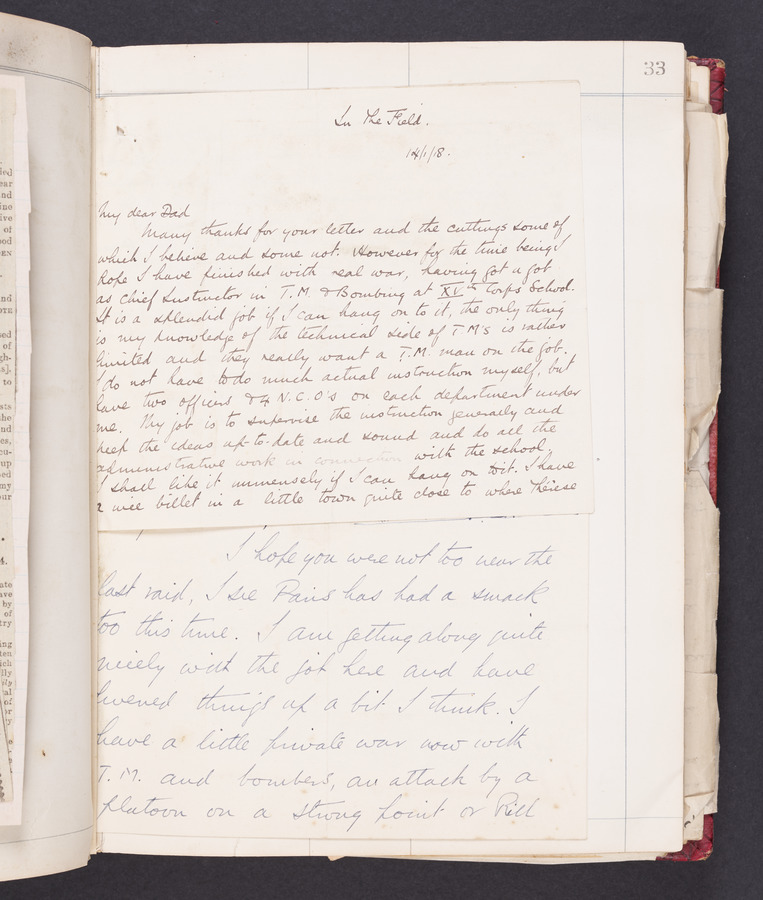 33
In The Field.
14/1/18.
My dear Dad
Many thanks for your letter and the cuttings some of
which I believe and some not. However for the time being I
hope I have finished with real war, having got a job
as Chief Instructor in T.M. & Bombing at XVth Corps School.
It is a splendid job if I can hang on to it, the only thing
is my knowledge of the technical side of T M's is rather
limited and they really want a T.M. man on the job.
I do not have to do much actual instruction myself, but
have two officers & 4 N.C.O's on each department under
me. My job is to supervise the instruction generally and
keep the ideas up-to-date and sound and do all the
administrative work in connection with the school.
I shall like it immensely if I can hang on to it. I have
a nice billet in a little town quite close to where Therese
I hope you were not too near the
last raid, I see Paris has had a smack
too this time. I am getting along quite
nicely with the job here and have
livened things up a bit I think. I
have a little private war now with
T.M. and bombers, an attack by a
platoon on a strong point or Pill